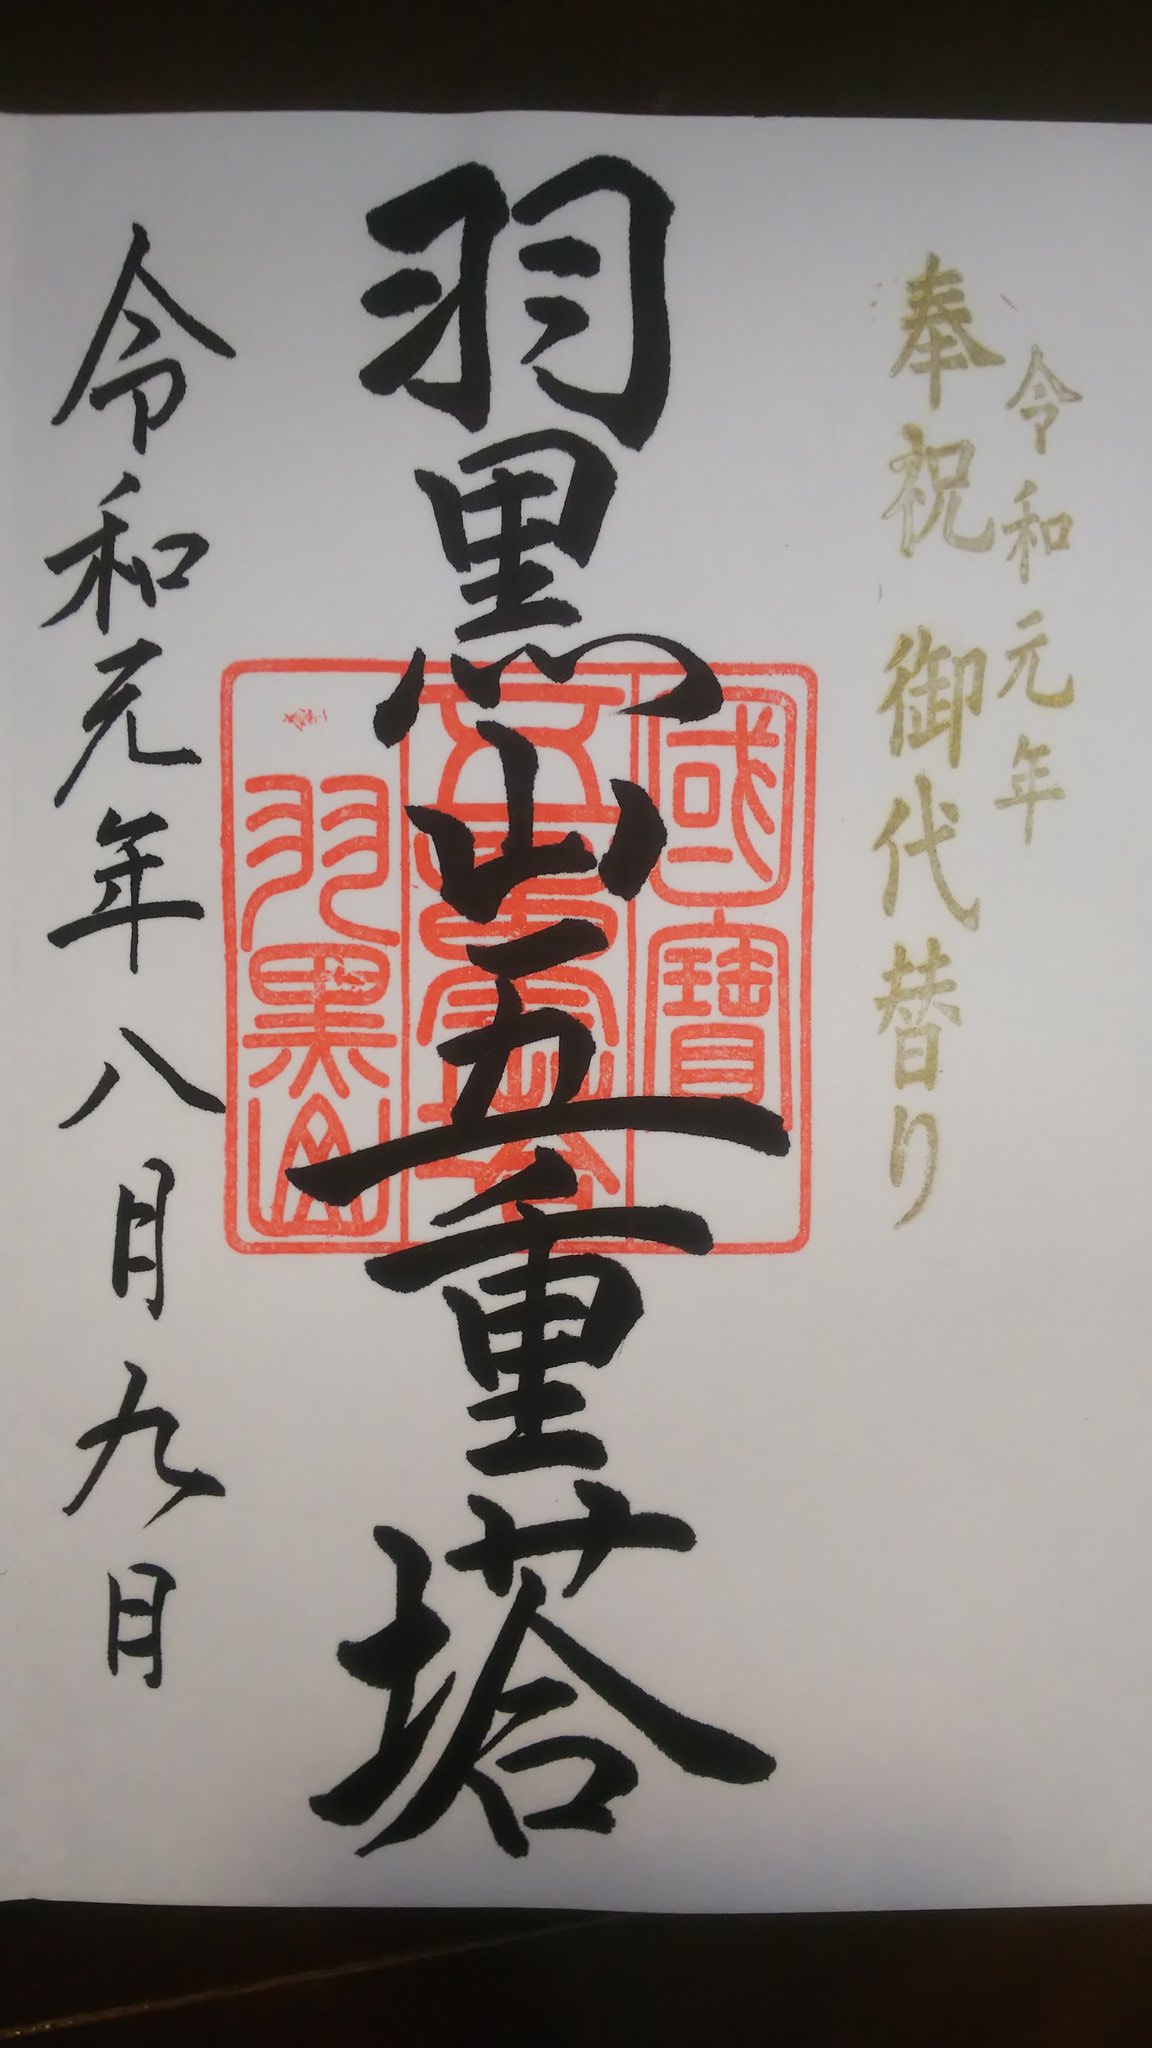 令和元年
奉祝 御代替り
羽黒山五重塔
國寶
五重塔
羽黒山
令和元年八月九日